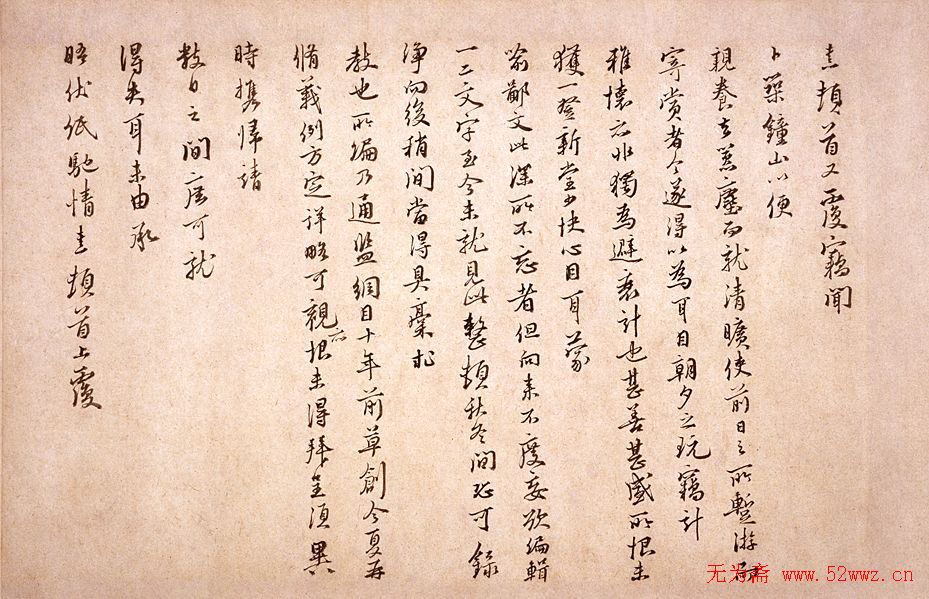 熹頓首又覆竊聞
卜築鐘山以便
親養去囂塵而就清曠使前日之所暫游而
寄賞者今遂得以為耳目朝夕之玩竊計
雅懷亦非獨為避衰計也甚善甚盛所恨未
獲一登新堂少快心目耳蒙
喻鄙文此深所不忘者但向來不度妄欲編輯
一二文字至今未就見此整頓秋冬間恐可錄
淨向後稍間當得具稾求
教也所編乃通鑑綱目十年前草創今夏再
脩義例方定詳略可觀亦恨未得拜呈須異
時携歸請
數日之間庶可就
得失耳未由承
晤伏紙馳情熹頓首上覆
无为斋 www.52wwz.cn